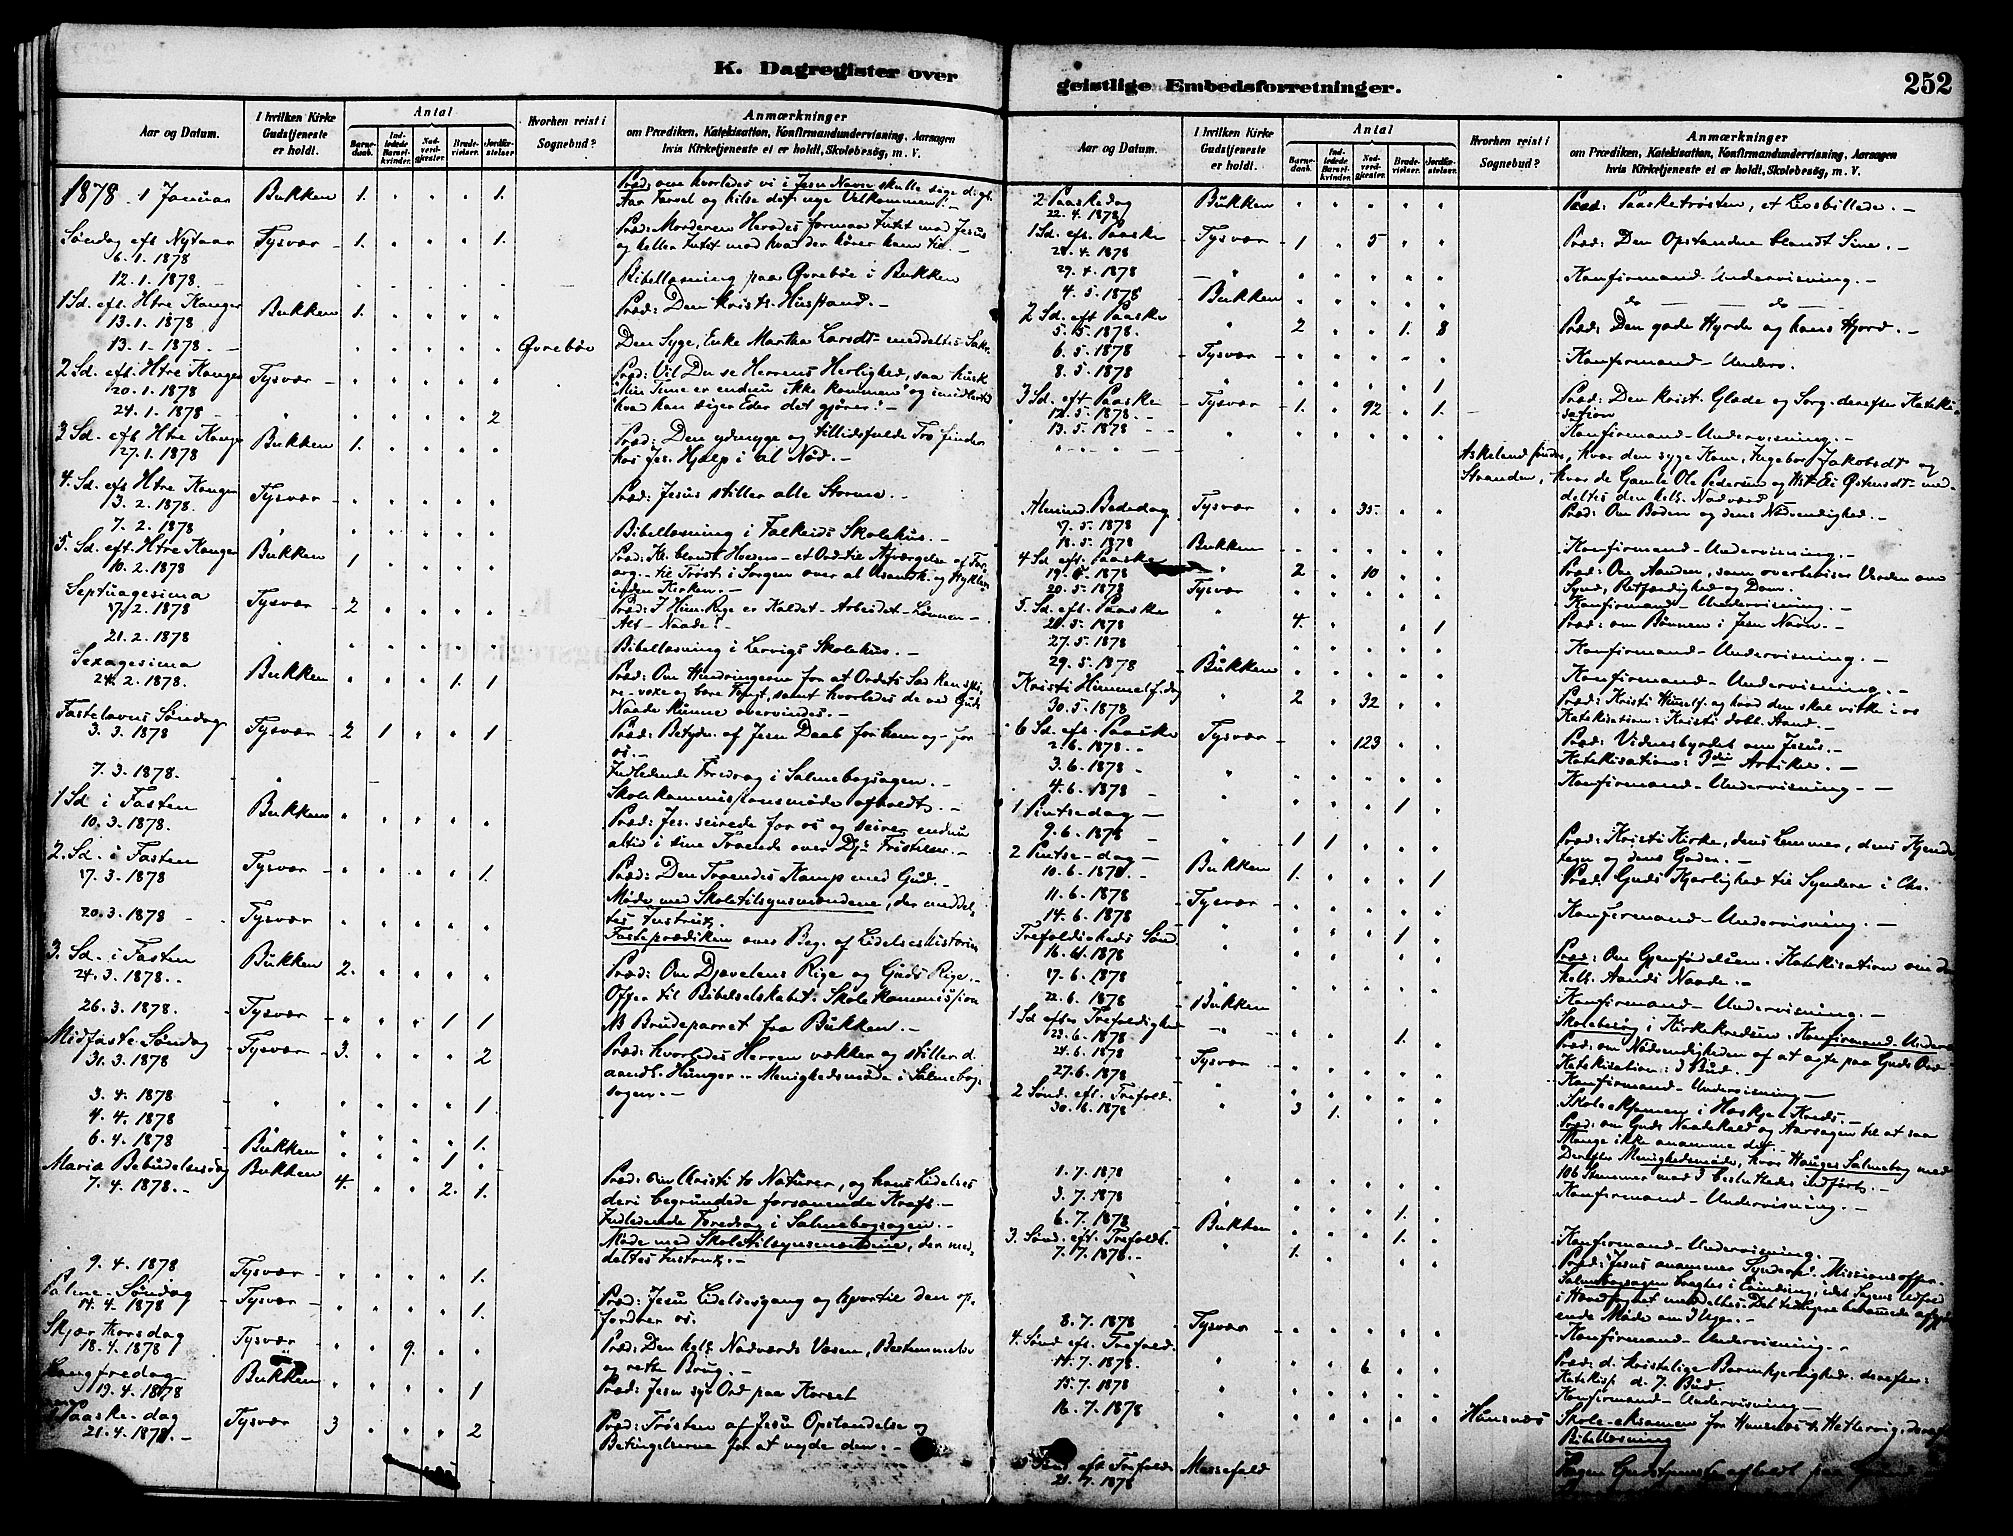 K. Dagregister over
geistlige Embedsforretninger.
252
Aar og Datum.
I hvilken Kirke Gudstjeneste er holdt.
Antal
Barnedaab.
Indledede Barselkvinder.
Nadverdgjester.
Brudevielser.
Jordfæstelser.
Hvorhen reist i Sognebud?
Anmærkninger
om Prædiken, Katekisation, Konfirmandundervisning, Aarsagen
hvis Kirketjeneste ei er holdt, Skolebesøg, m. V.
1878 1 Januar Bukken 1. 1. Præd: om hvorledes vi i Jesu Navn skulle sige
Far Farvel og hilse det nye Velkommen!
Søndag eft Nytaar Tysvær 1. 1. Præd: Morderen Herodes formaar Intet mod Jesus
6.1.1878 og heller Intet mod hvad der hører ham til.
12.1.1878 Bibellæsning paa Øvrebøe i Bukken
1 Sd. eft. Htre Konger Bukken 1. Præd: Den kristl. Husstand.
13.1.1878
13.1.1878 Øvrebøe Den Syge, Enke Martha Larsdt meddeltes Sakr.
2 Sd. eft. Htre Konger Tysvær Præd: Vil Du se Herrens Herlighed, saa husk
20.1.1878 "Min Time er endnu ikke kommen" og imidlertid
24.1.1878 2 hvad han siger Eder det gjører!
3 Sd. eft Htre Konger Bukken 1. Præd: Den ydmyge og tillidsfulde Tro finder
27.1.1878 hos Jes. Hjælp i al Nød.
4. Sd. eft Htre Konger Tysvær Præd: Jesus stiller alle Storme.
3.2.1878
7.2.1878 Bibellæsning i Falkeids Skolehus.
5. Sd. eft. Htre Konger Bukken 1 Præd: Kl. blandt Hveden - et Ord til Afværgelse af
10.2.1878 til Trøst i Sorgen over al Usandh. og Hykleri
inden Kirken.
Septuagesima Tysvær 2 Præd: I Him. Rige er Kaldet - Arbeidet - Lønnen -
17.2.1878 Alt - Naade!
21.2.1878 Bibellæsning i Lervigs Skolehus.
Sexagesima Bukken 1. 1 Præd: Om Hindringerne for at Ordets Sæd kan
24.2.1878. voxe og bære Frugt, samt hvorledes de ved Guds
Naade kunne overvindes.
Fastelavns Søndag Tysvær 2 1 1 Præd: Betydn. af Jesu Daab for ham og for
3.3.1878 os.
7.3.1878. Indledende Foredrag i Salmebogsagen.
1 Sd i Fasten Bukken Skolekommissionsmøde afholdt.
10.3.1878. Præd: Jes. seirede for os og seirer endnu
altid i sine Troende over Dj. Fristelser.
2. Sd. i Fasten Tysvær 1. Præd: Den Troendes Kamp med Gud.
17.3.1878 Møde med Skoletilsynsmændene, der meddel-
20.3.1878 Tysvær tes Instrux.
Fasteprædiken over Beg. af Lidelseshistorien
3. Sd. i Fasten Bukken 2. Præd: Om Djævelens Rige og Guds Rige.
24.3.1878. Offer til Bibelselskabet. Skolekommission
26.3.1878 Tysvær 1 1 NB Brudeparret fra Bukken.
Midfaste Søndag Tysvær 3. 2 Præd: hvorledes Herren vækker og stiller d.
31.3.1878 aandl. Hunger. Menighedsmøde i Salmebog-
3.4.1878 1. sagen.
4.4.1878
6.4.1878 Bukken 1.
Mariæ Bebudelsesdag Bukken 4. 2. 1. Præd: om Christi to Naturer, og hans Lidelses
7.4.1878. deri begrundede forsonende Kraft.
Indledende Foredrag i Salmebogsagen.
Møde med Skoletilsynsmændene, der med-
9.4.1878 Tysvær 1. deltes Instrux.
Palme-Søndag Tysvær 1. Præd: Jesu Lidelsesgang og hvortil den op-
14.4.1878 fordrer os.
Skjær Torsdag Tysvær 9. Præd: Den hell. Nadverds Væsen, Bestemmelse
18.4.1878 og rette Brug.
Langfredag Bukken 1 Præd: Jesu syv Ord paa Korset
19.4.1878
Paaske-dag Tysvær 3 2 Præd: Trøsten af Jesu Opstandelse og
21.4.1878. Betingelserne for at nyde den.
Aar og Datum.
I hvilken Kirke Gudstjeneste er holdt.
Antal
Barnedaab.
Indledede Barselkvinder.
Nadverdgjester.
Brudevielser.
Jordfæstelser.
Hvorhen reist i Sognebud?
Anmærkninger
om Prædiken, Katekisation, Konfirmandundervisning, Aarsagen
hvis Kirketjeneste ei er holdt, Skolebesøg, m. V.
2 Paaskedag Bukken Præd: Paasketrøsten, et Livsbillede.
22.4.1878
1 Sd. eft. Paaske Tysvær 1 5 Præd: Den Opstandne blandt Sine.
28.4.1878
29.4.1878 Konfirmand-Undervisning.
4.5.1878 Bukken do do
2 Sd. eft Paaske 2 1. 8 Præd: Den gode Hyrde og hans Hjord.
5.5.1878.
6.5.1878 Tysvær Konfirmand-Underv.
8.5.1878 1
3 Sd. eft Paaske Tysvær 1. 92 1. Præd: Den krist. Glæde og Sorg. derefter Kateki-
12.5.1878. sation
13.5.1878 Konfirmand-Undervisning.
Askeland hvor den syge Kone, Ingebor Jakobsdt og
Stranden, hvor de Gamle Ole Pedersen og Østensdt med-
deltes den hell. Nadverd
Almind. Bededag Tysvær 35. Præd: Om Boden og dens Nødvendighed.
17.5.1878
18.5.1878 Bukken Konfirmand-Undervisning.
4 Sd. eft. Paaske 2 10 Præd: Om Aanden, som overbeviser Verden om
19.5.1878 Synd, Retfærdighed og Dom.
20.5.1878 Tysvær Konfirmand-Undervisning.
5. Sd. eft. Paaske 4. 1 Præd: om Bønnen i Jesu Navn.
26.5.1878
27.5.1878 Konfirmand-Undervisning.
29.5.1878 Bukken Konfirmand-Undervisning.
Kristi Himmelf. dag 2 32 Præd: Kristi Himelf. og hvad den skal virke i os
30.5.1878 Katekisation: Kristi dobb. Stand.
6 Sd. eft. Paaske Tysvær 123 Præd: Vidnesbyrdet om Jesus.
2.6.1878. Katekisation: 3die Artikel.
3.6.1878 Konfirmand-Undervisning
4.6.1878 1
1 Pintsedag
9.6.1878 1 1 Præd: Kristi Kirke, dens Lemmer, dens Kjende-
tegn og dens Goder.
2 Pintse-dag Bukken 1. 1 Præd: Guds Kjærlighed til Syndere i Chr.
10.6.1878.
11.6.1878 Tysvær Konfirmand-Undervisning.
14.6.1878 1
Trefoldigheds Sønd. Præd: Om Gjenfødelsen. Katekisation om den
16.6.1878 hell. Aands Naade.
17.6.1878 Konfirmand-Undervisning.
22.6.1878 Bukken Skolebesøg i Kirkekredsen. Konfirmand-Underv.
1 Sd efter Trefoldighed 1. Præd: om Nødvendigheden af at agte paa Guds Ord
23.6.1878 Katekisation: 3 Bud.
24.6.1878 Tysvær Konfirmand-Undervisning
27.6.1878 Skole-eksamen i Kreds.
2 Sønd. eft. Trefold. 3 1. Præd: om Guds Naadekald og Aarsagen til at saa
30.6.1878 Mange ikke anamme det.
Derefter Menighedsmøde, hvor Hauges Salmebog med
106 Stemmer mod 3 besluttedes indført.
1.7.1878 Konfirmand-Undervisning.
3.7.1878
6.7.1878 Bukken 1. Konfirmand-Undervisning.
3. Sønd. eft. Trefoldt. 1. 1. Præd: Jesus anammer Syndere. Missionsoffer.
7.7.1878. Salmebogsagen bragtes i Erindring, idet Sagens Udfald
8.7.1878 Tysvær Konfirmand-Undervisning.
4. Sønd eft. Trefold. 6 Præd: d. kristelige Barmhjertighed. derefter:
14.7.1878. Katekis. d. 7. Bud.
15.7.1878 Konfirmand-Undervisning
16.7.1878 Hunsnæs Skole-eksamen for Hunsnæs & Hetlervig.
Bibellæsning
5 Sønd eft Trefold. Messefald Ingen Gudstjeneste afholdt paa Grund
21.7.1878